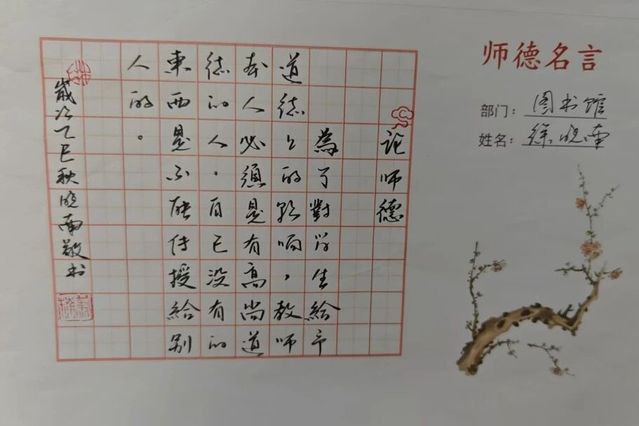 师德名言
部门：图书馆
姓名：徐晓南
论師德
為了對学生給予
道德上的影响，教師
本人必須是有高尚道
德的人，自己没有的
東西是不能传授給别
人的。
歲次乙巳秋晓南敬书